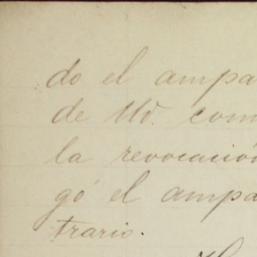 do el ampa
de Ud. com
la revocación
gó el ampa
trario.